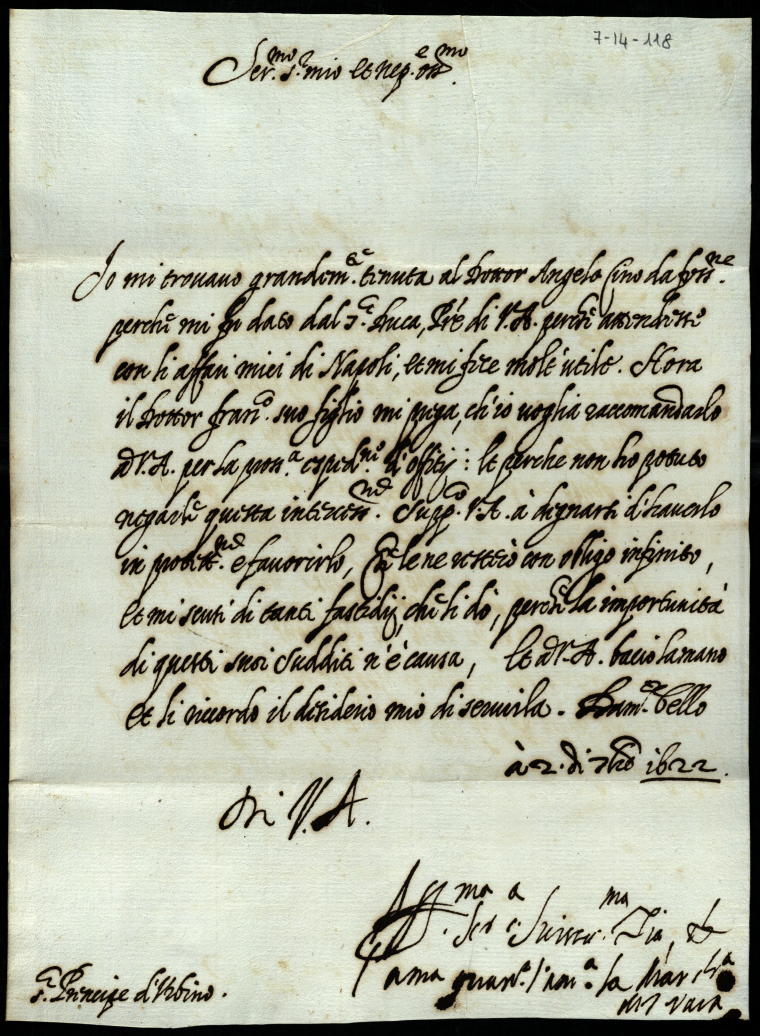 7-14-118
Ser.mo S.r mio et nep.e oss.mo
Io mi trovavo grandem.te tenuta al Dottor Angelo
perche mi fu dato dal S.r Duca, Pre di V.A. perche attendesse
con li affari miei di Napoli, et mi fece molt'utile. Hora
il Dottor Fran.co suo figlio mi prega, ch'io voglia raccomandarlo
à V.A. per la d'offitij: et perche non ho potuto
negarle questa Supp.co V.A. à dignarsi d'haverlo
in e favorirlo, che le ne resterò con obligo infinito,
et mi scusi di tanti fastidij, che li dò, perche la importunità
di questi suoi sudditi n'è causa, et à V.A. bacio la mano
et li ricordo il desiderio mio di servirla. bello
à 2. di 7bre 1622.
Di V.A.
Aff.ma Zia, et
la Mar
del Vasto
S.r Principe d'Urbino.